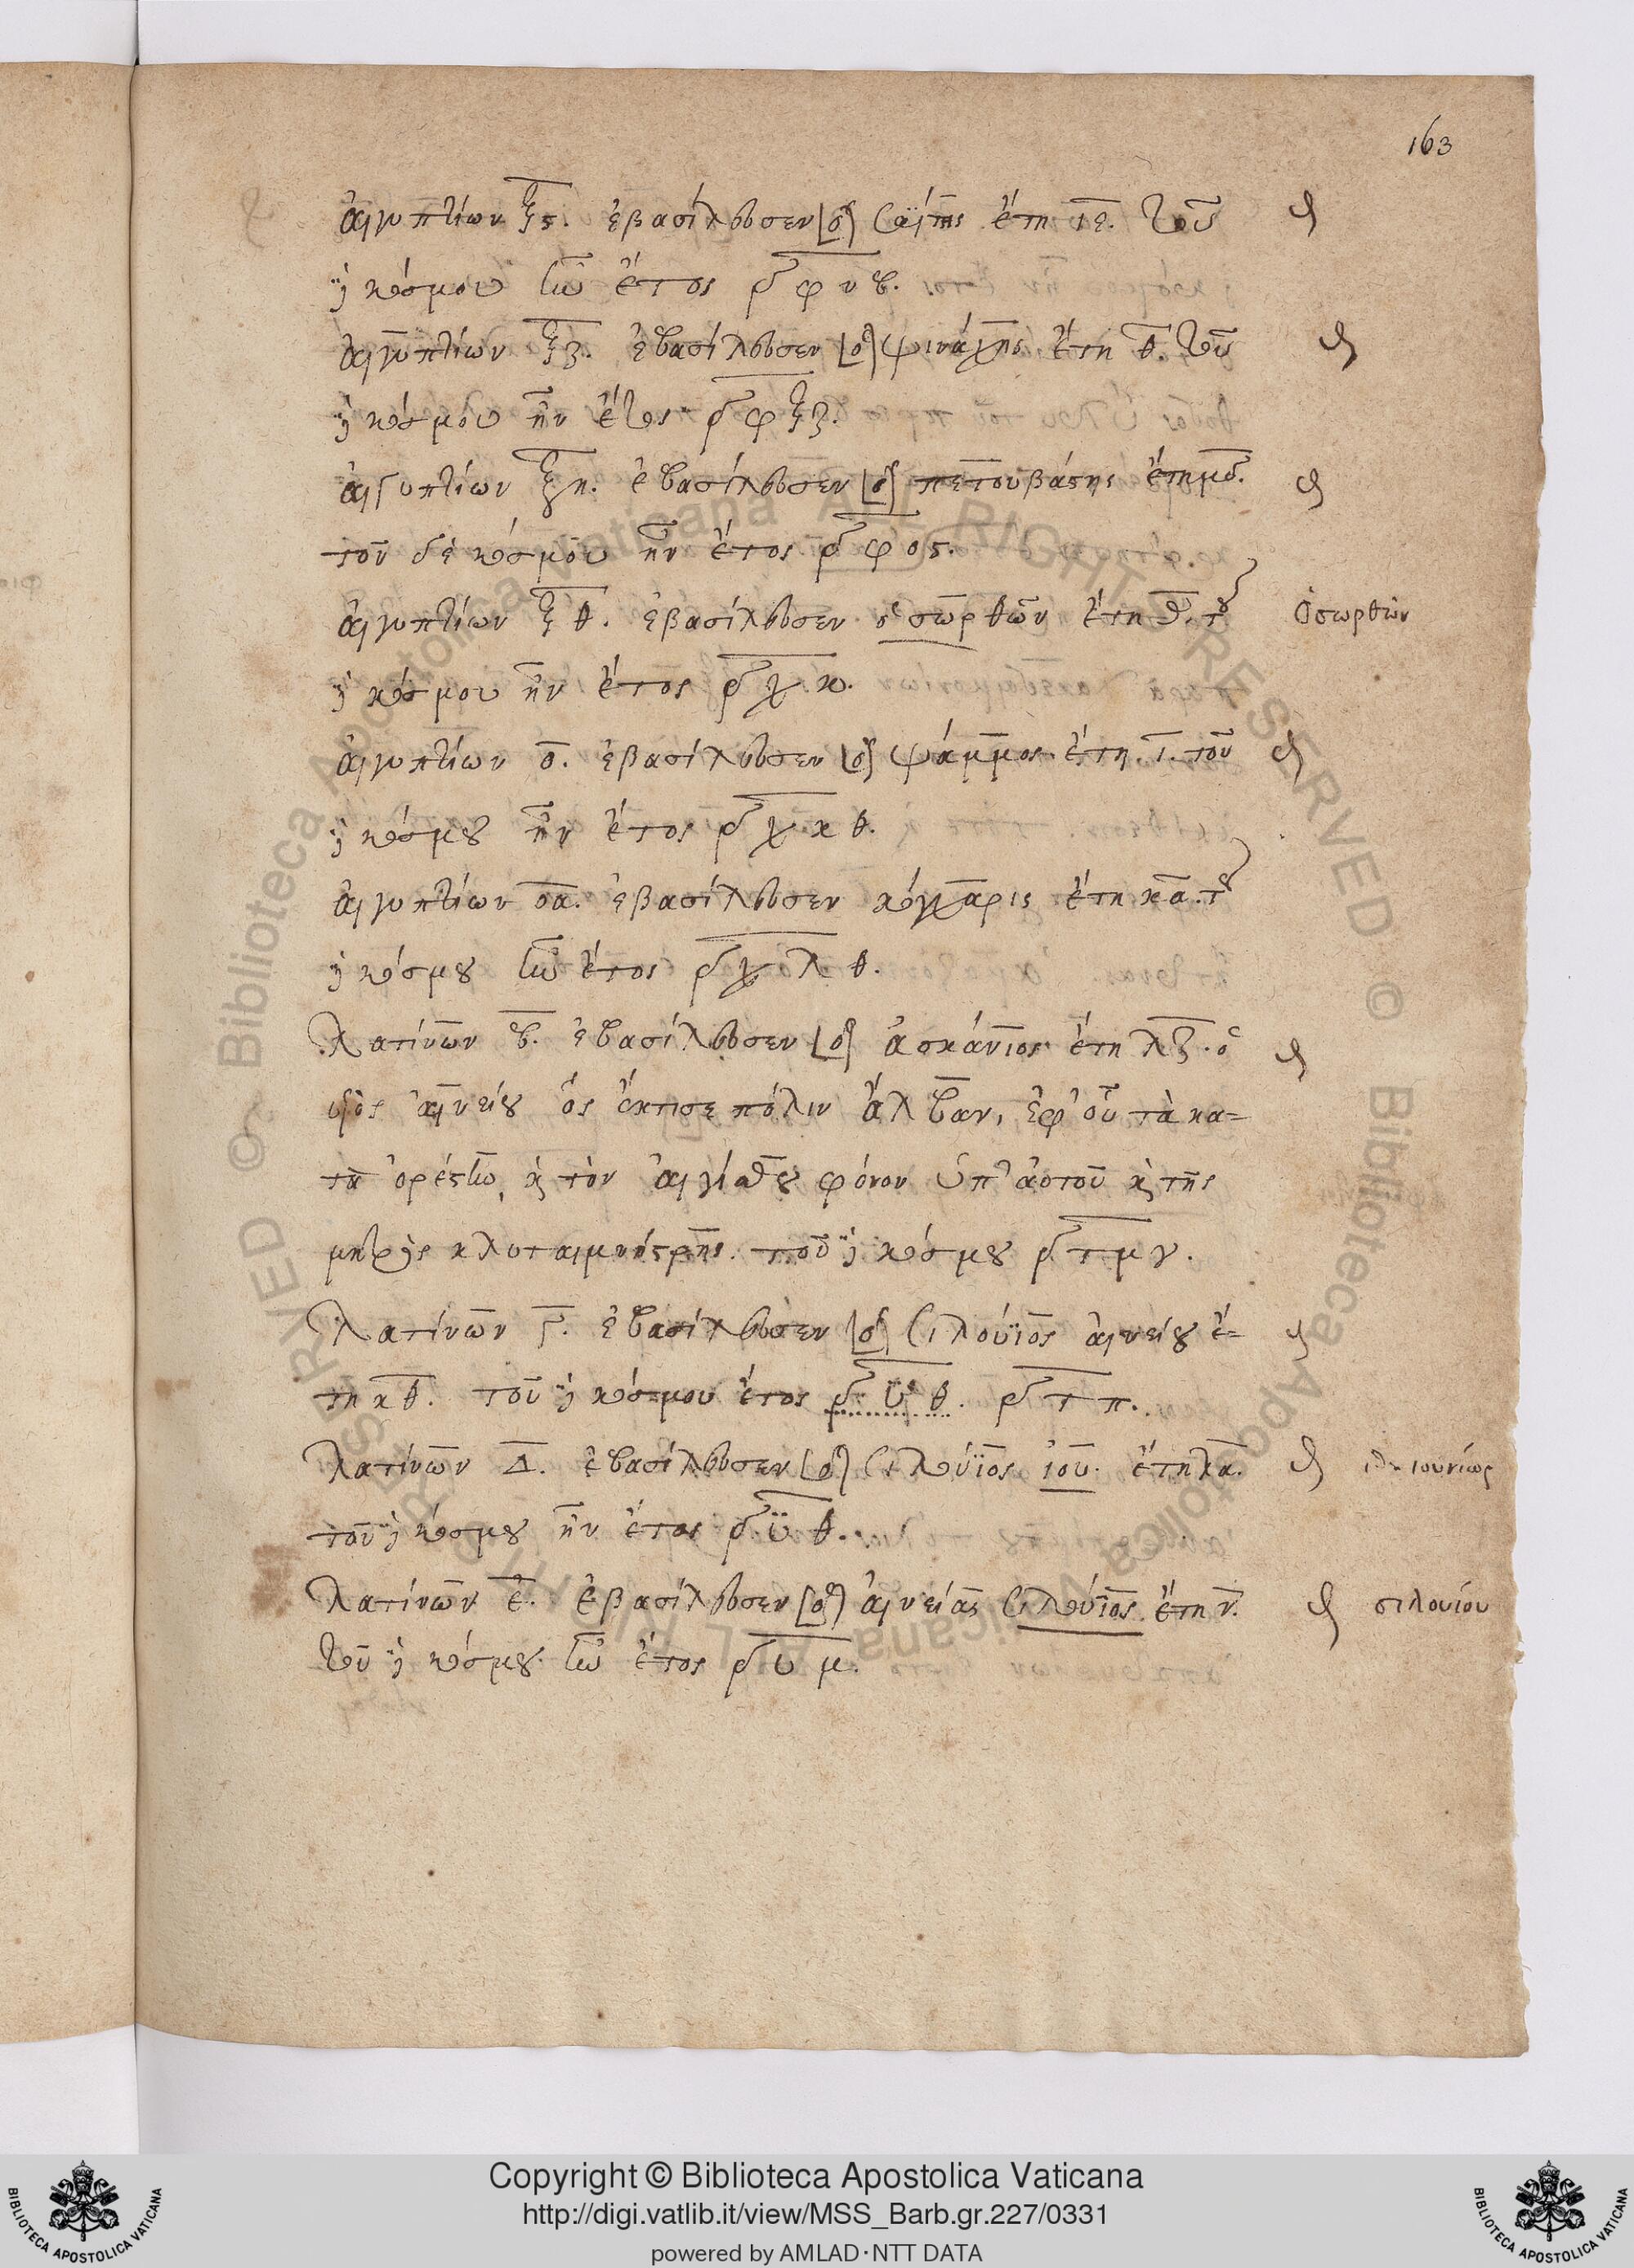 163
αἰγυπτίων ξϛ. ἐβασίλευσεν [ὁ] σαΐτης ἔτη ιε. τοῦ
δὲ κόσμου ἦν ἔτος ͵δφνβ.
αἰγυπτίων ξζ. ἐβασίλευσεν [ὁ] ψινάχης ἔτη θ. τοῦ
δὲ κόσμου ἦν ἔτος ͵δφξζ.
αἰγυπτίων ξη. ἐβασίλευσεν [ὁ] πετουβάστης ἔτη μδ.
τοῦ δὲ κόσμου ἦν ἔτος ͵δφοϛ.
αἰγυπτίων ξθ. ἐβασίλευσεν ὁ σωρθῶν ἔτη θ. τοῦ Ὀσωρθὼν
δὲ κόσμου ἦν ἔτος ͵δχκ.
αἰγυπτίων ο. ἐβασίλευσεν [ὁ] ψάμμος ἔτη ι. τοῦ
δὲ κόσμου ἦν ἔτος ͵δχκθ.
αἰγυπτίων οα. ἐβασίλευσεν κόγχαρις ἔτη κα. τοῦ
δὲ κόσμου ἦν ἔτος ͵δχλθ.
λατίνων β. ἐβασίλευσεν [ὁ] ἀσκάνιος ἔτη λζ. ὁ
υἱὸς αἰνείου ὃς ἔκτισε πόλιν ἄλβαν, ἐφ' οὗ τὰ κα-
τὰ ὀρέστην, καὶ τὸν αἰγίσθου φόνον ὑπ' αὐτοῦ καὶ τῆς
μητρὸς κλυταιμνήστρης. τοῦ δὲ κόσμου ͵δτμγ.
λατίνων γ. ἐβασίλευσεν [ὁ] σιλούϊος αἰνείου ἔ-
τη κθ. τοῦ δὲ κόσμου ἔτος ͵δυθ. ͵δτπ.
λατίνων Δ. ἐβασίλευσεν [ὁ] σιλούϊος ἰου. ἔτη λα. ἰουνίωρ
τοῦ δὲ κόσμου ἦν ἔτος ͵δυθ.
λατίνων ε. ἐβασίλευσεν [ὁ] αἰνείας σιλούϊος ἔτη ν. σιλουίου
τοῦ δὲ κόσμου ἦν ἔτος ͵δυμ.
Copyright © Biblioteca Apostolica Vaticana
http://digi.vatlib.it/view/MSS_Barb.gr.227/0331
powered by AMLAD·NTT DATA
BIBLIOTECA APOSTOLICA VATICANA
BIBLIOTECA APOSTOLICA VATICANA